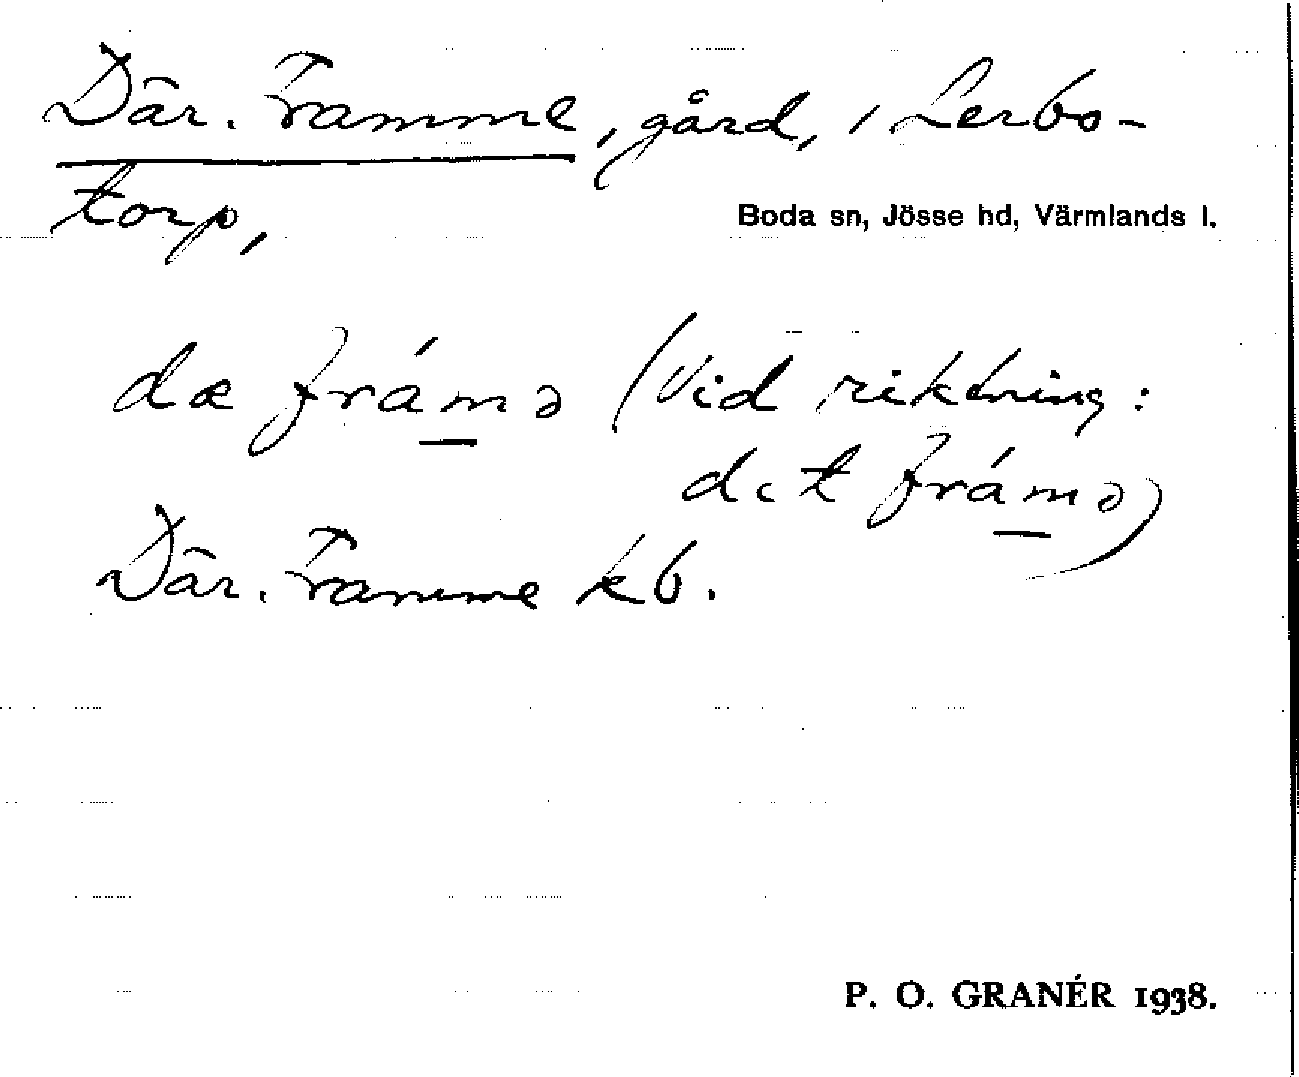 Där. Framme, gård, i Lerbo-
torp,
Boda sn, Jösse hd, Värmlands l.
dæ frámə (vid riktning:
dit frámə)
Där. Framme kb.
P. O. GRANÉR 1938.